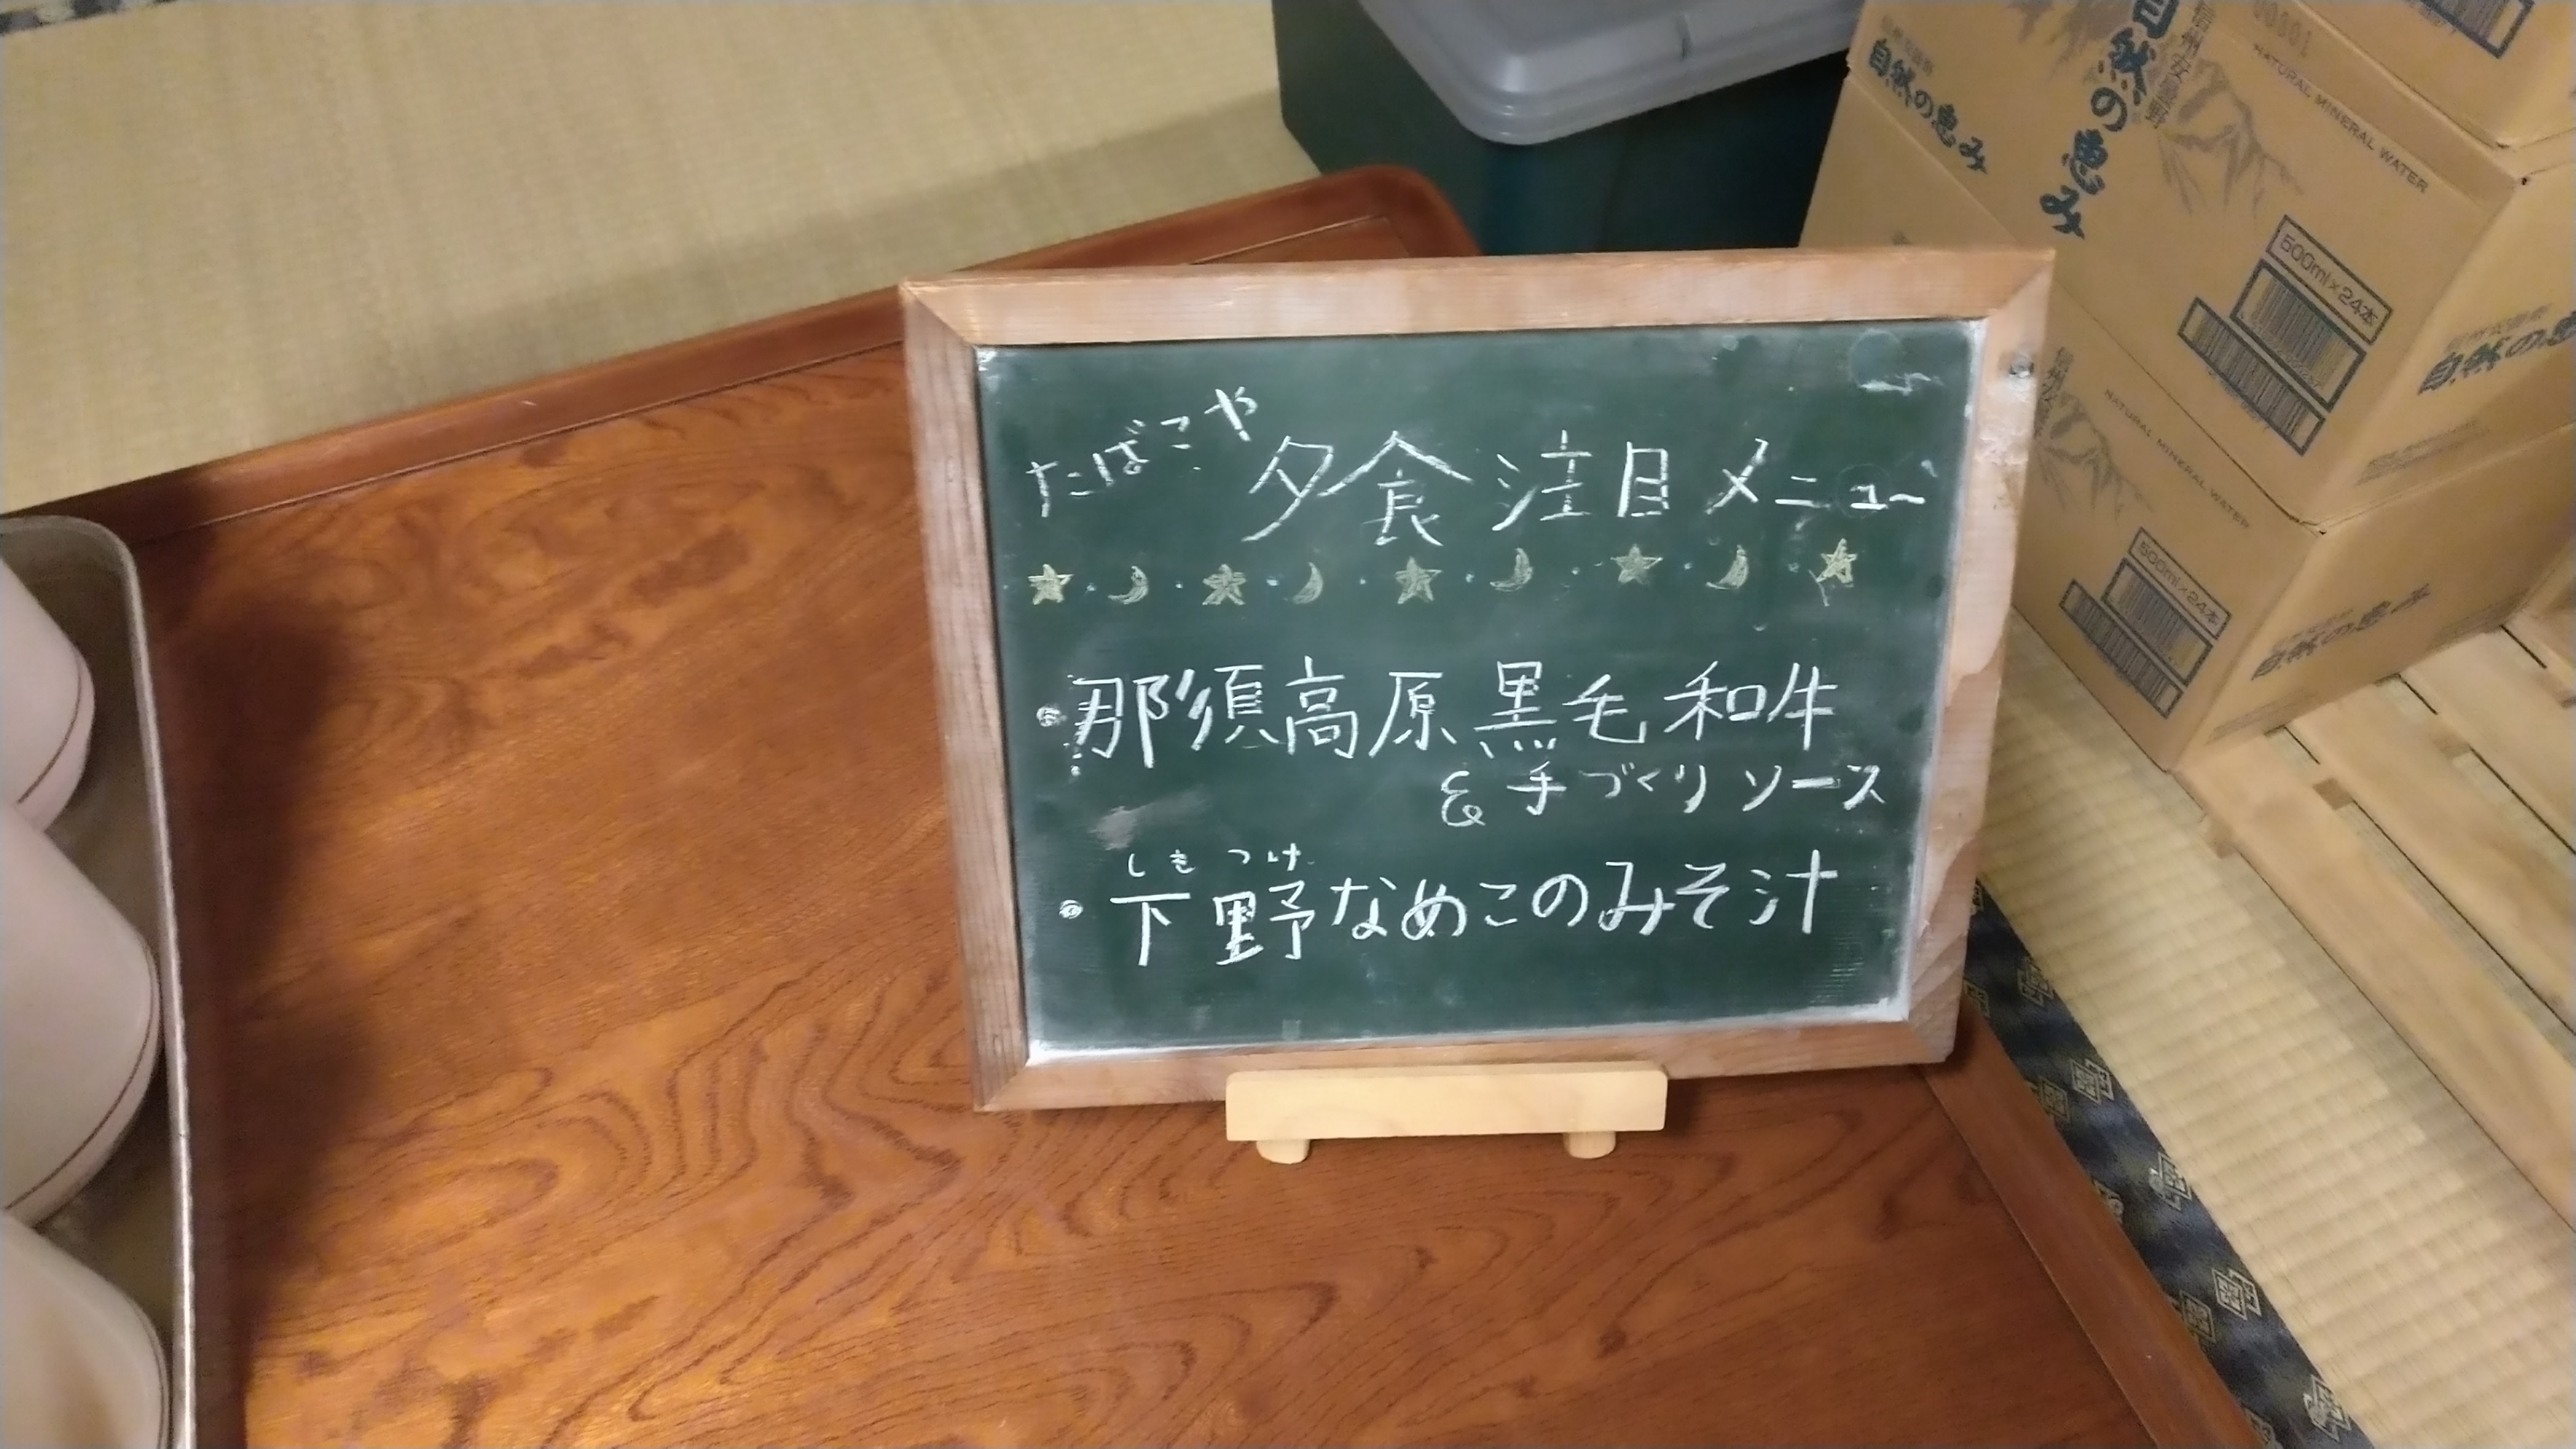 たばこや
夕食注目メニュー
・那須高原黒毛和牛
& 手づくりソース
しもつけ
・下野なめこのみそ汁
自然の恵み
自然の恵み
信州安曇野
NATURAL MINERAL WATER
500ml×24本
自然の恵
NATURAL MINERAL WATER
500ml×24本
自然の恵み